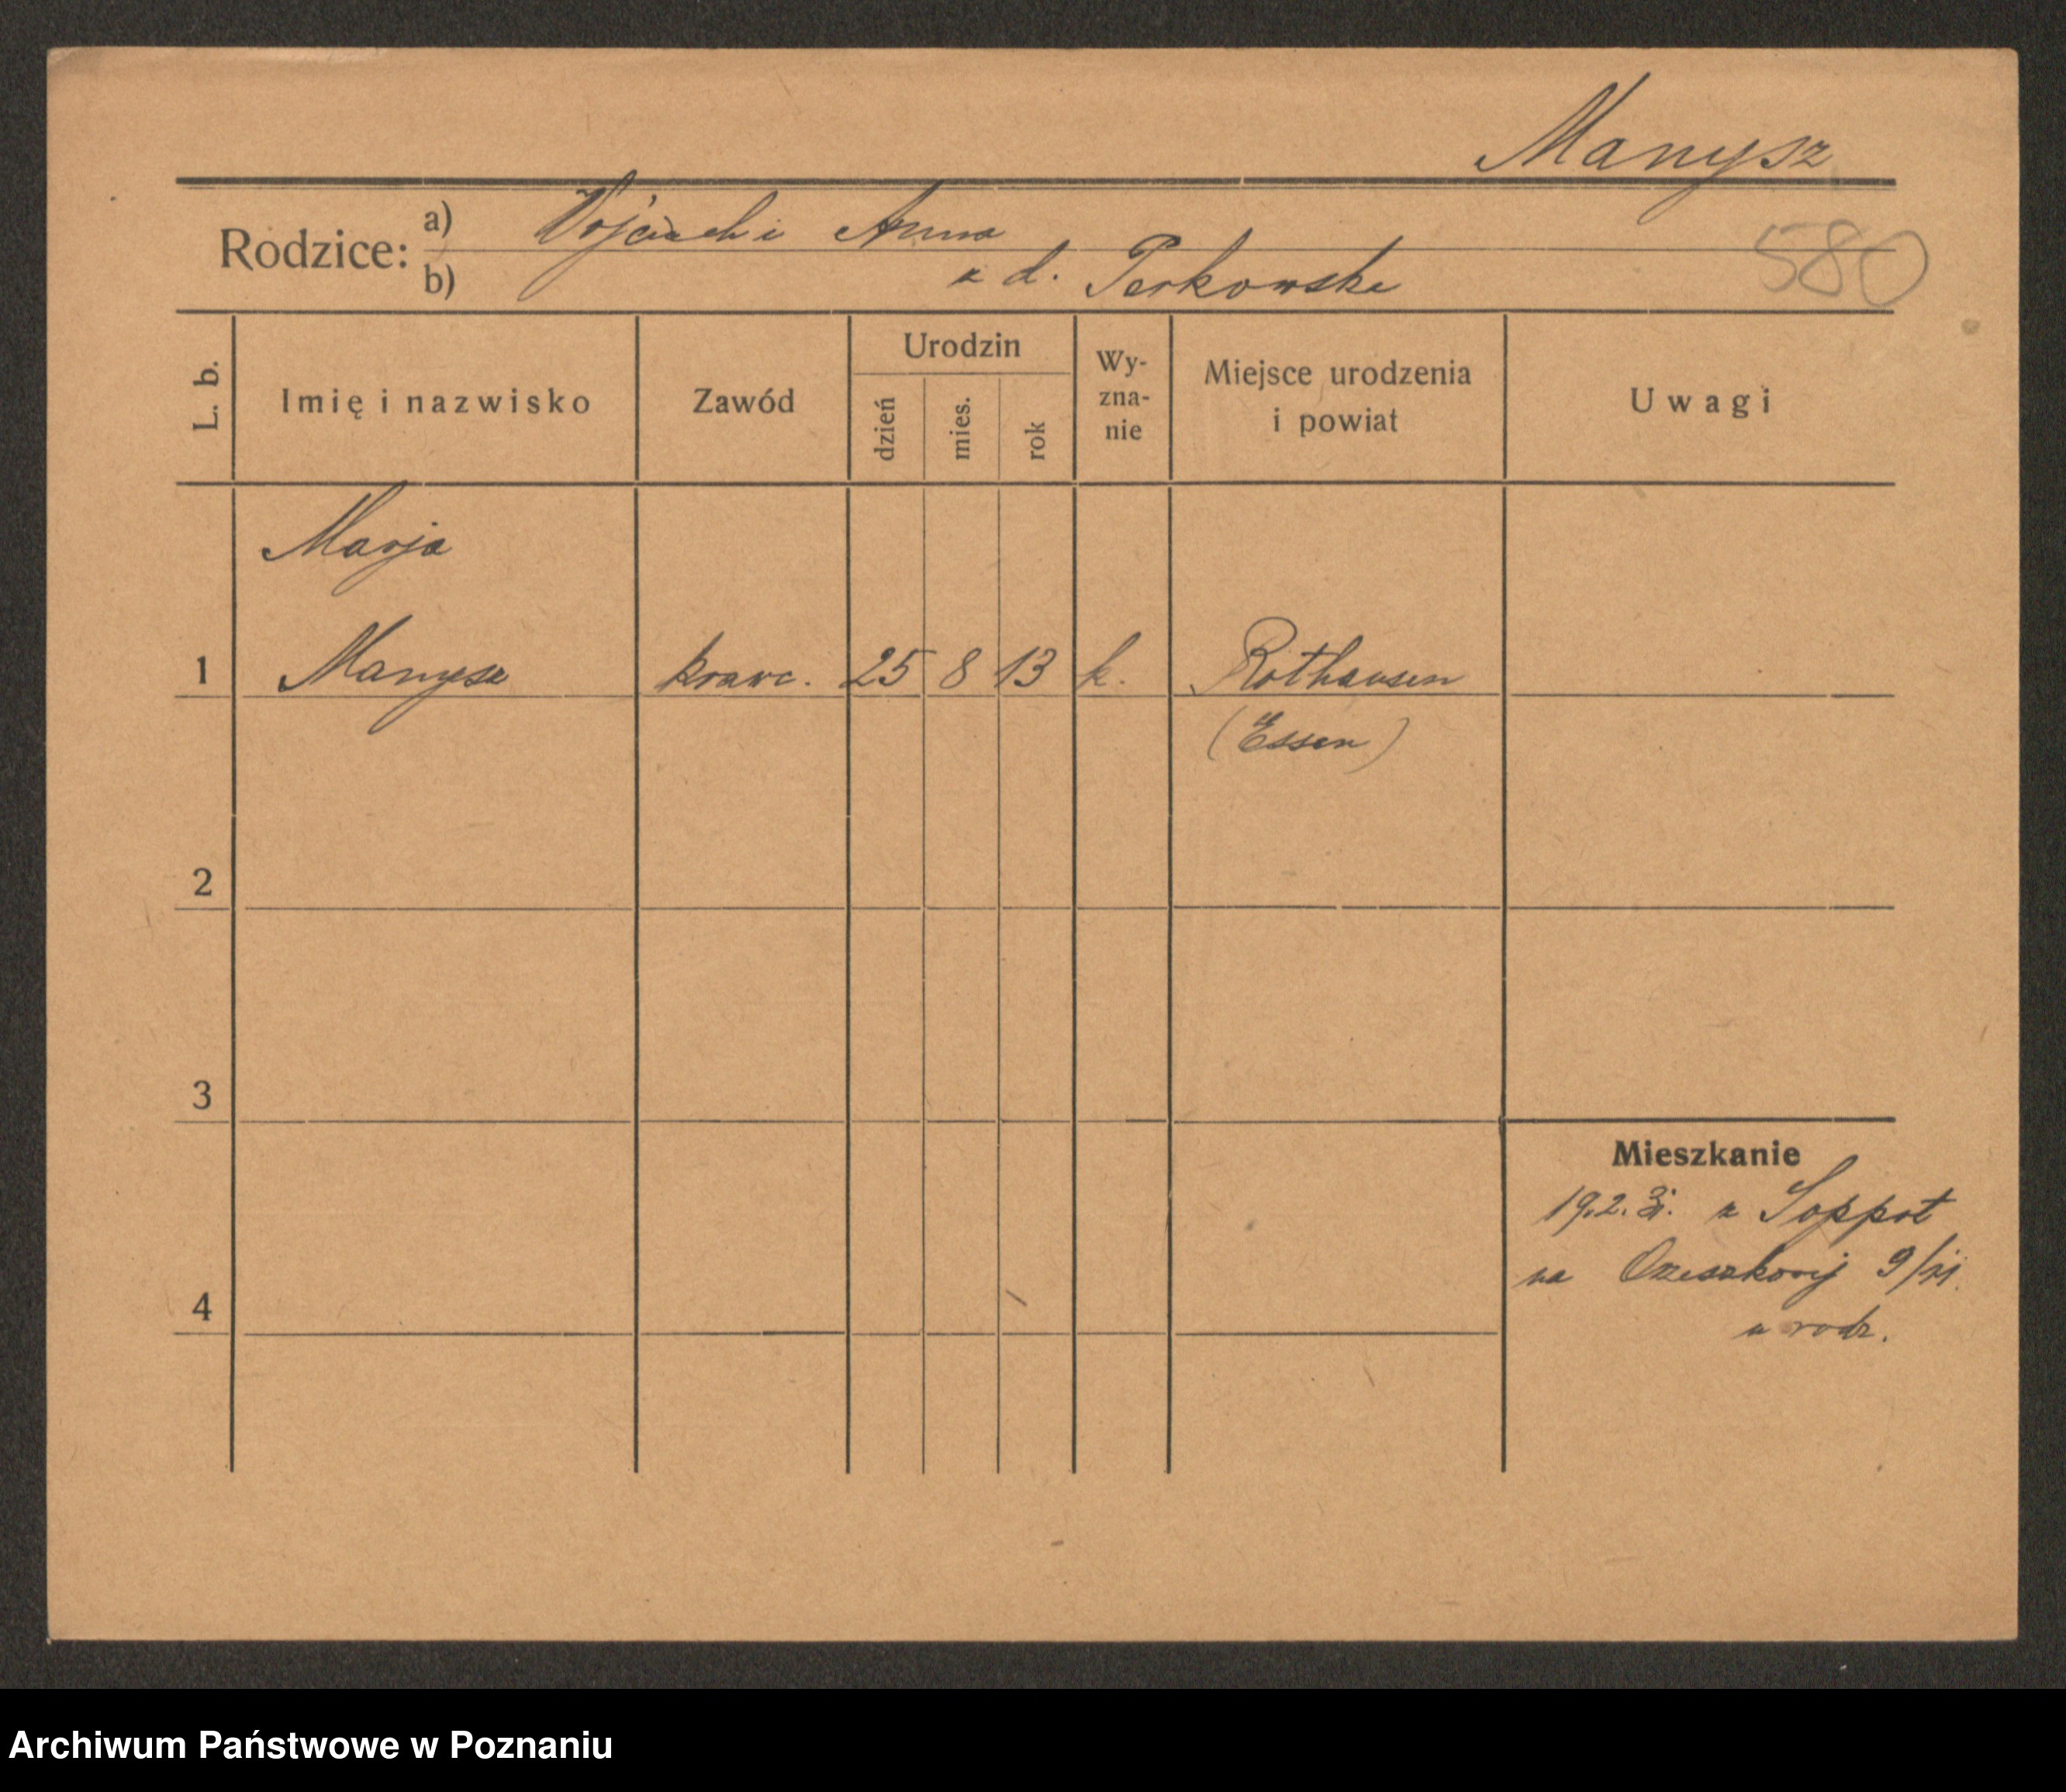 Manysz
Rodzice: a) Wojciech i Anna
b) z d. Perkowska
580
L. b. Imię i nazwisko Zawód Urodzin dzień mies. rok Wy-zna-nie Miejsce urodzenia i powiat Uwagi
Marja
1 Manysz krawc. 25 8 13 k. Rothausen
(Essen)
2
3
Mieszkanie
19.2. z Soppot
na Orzeszkowej 9/
4
u rodz.
Archiwum Państwowe w Poznaniu